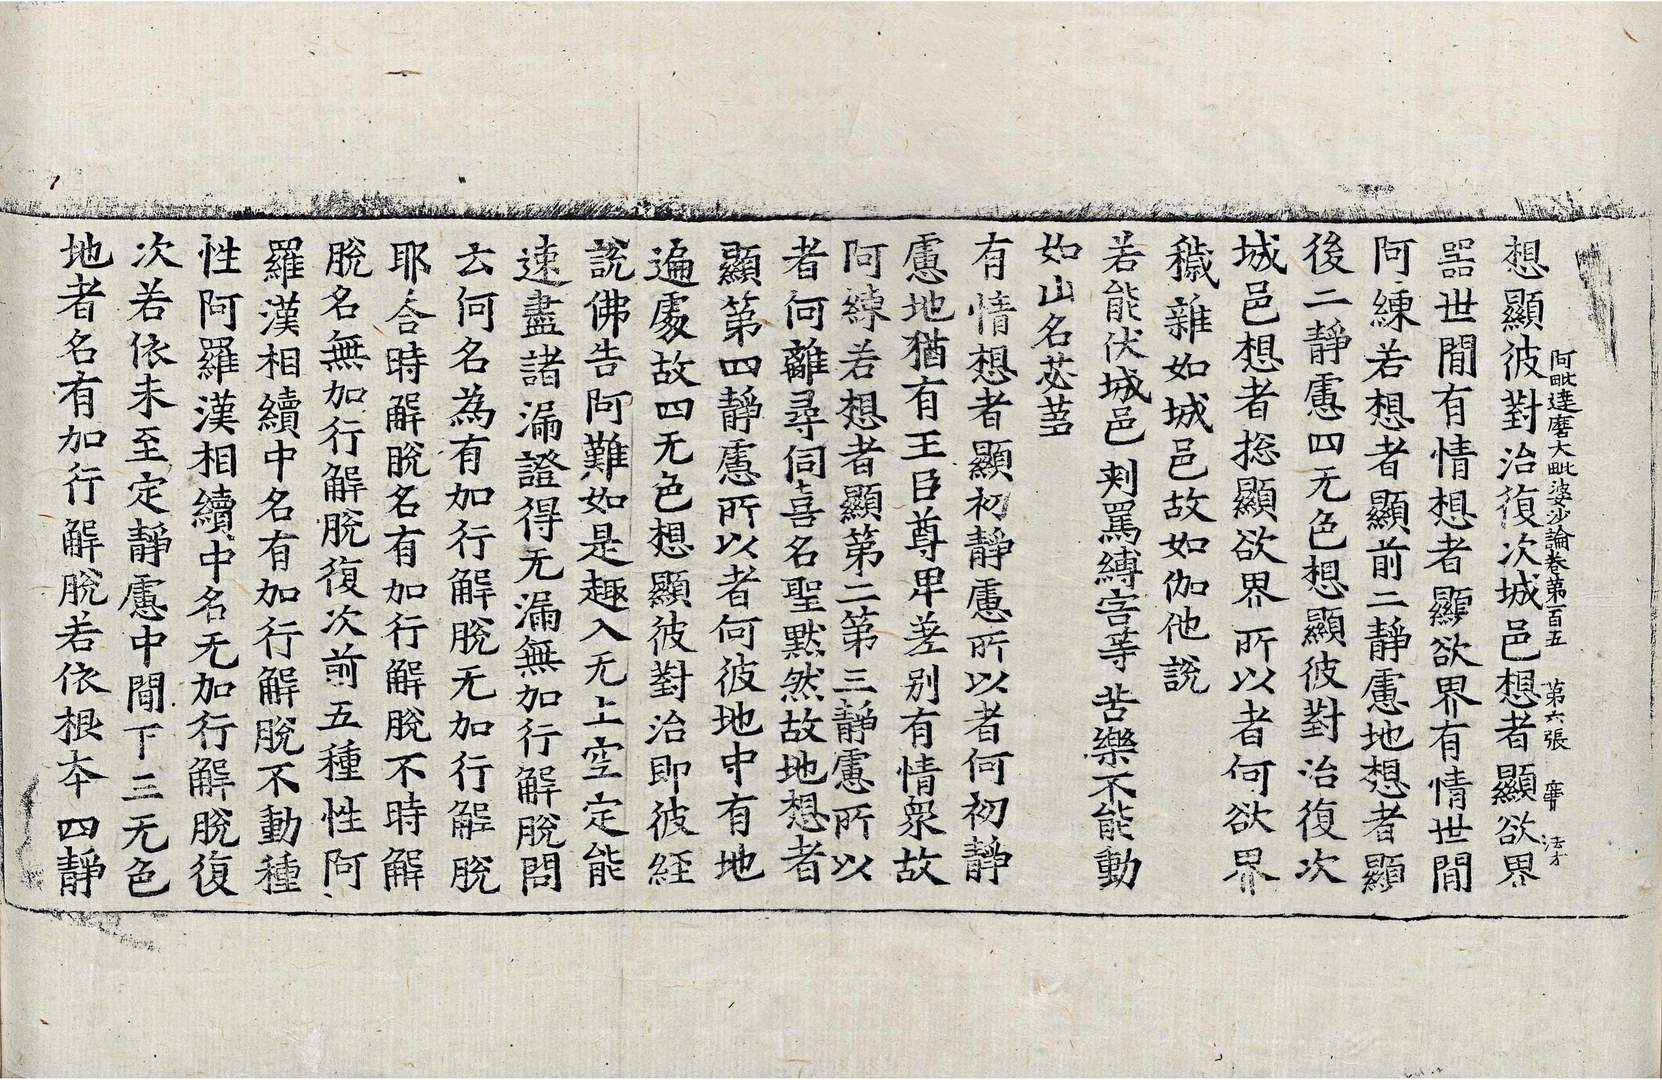 阿毗達磨大毗婆沙論卷第百五 第六張 法才
想顯彼對治復次城邑想者顯欲界
器世間有情想者顯欲界有情世間
阿練若想者顯前二靜慮地想者顯
後二靜慮四无色想顯彼對治復次
城邑想者捴顯欲界所以者何欲界
穢雜如城邑故如伽他說
若能伏城邑 刾罵縛害等 苦樂不能動
如山名苾芻
有情想者顯初靜慮所以者何初靜
慮地猶有王臣尊卑差别有情衆故
阿練若想者顯第二第三靜慮所以
者何離尋伺喜名聖默然故地想者
顯第四靜慮所以者何彼地中有地
遍處故四无色想顯彼對治即彼經
說佛告阿難如是趣入无上空定能
速盡諸漏證得无漏無加行解脫問
云何名為有加行解脫无加行解脫
耶答時解脫名有加行解脫不時解
脫名無加行解脫復次前五種性阿
羅漢相續中名有加行解脫不動種
性阿羅漢相續中名无加行解脫復
次若依未至定靜慮中間下三无色
地者名有加行解脫若依根本四靜